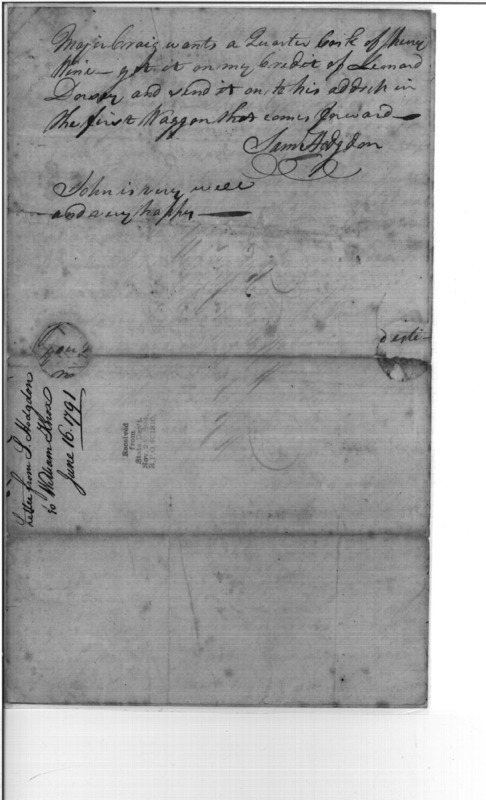 Major Craig wants a Quarter Cask of Sherry
Wine — get it on my Credit of Leonard
Dorsey and send it on to his address in
the first Waggon that comes forward —
Saml Hodgdon
John is very well
and very happy —
your
d esti-
Letter from S. Hodgdon
to William Knox
June 16. 1791
Received
from
State Dept.
Nov.